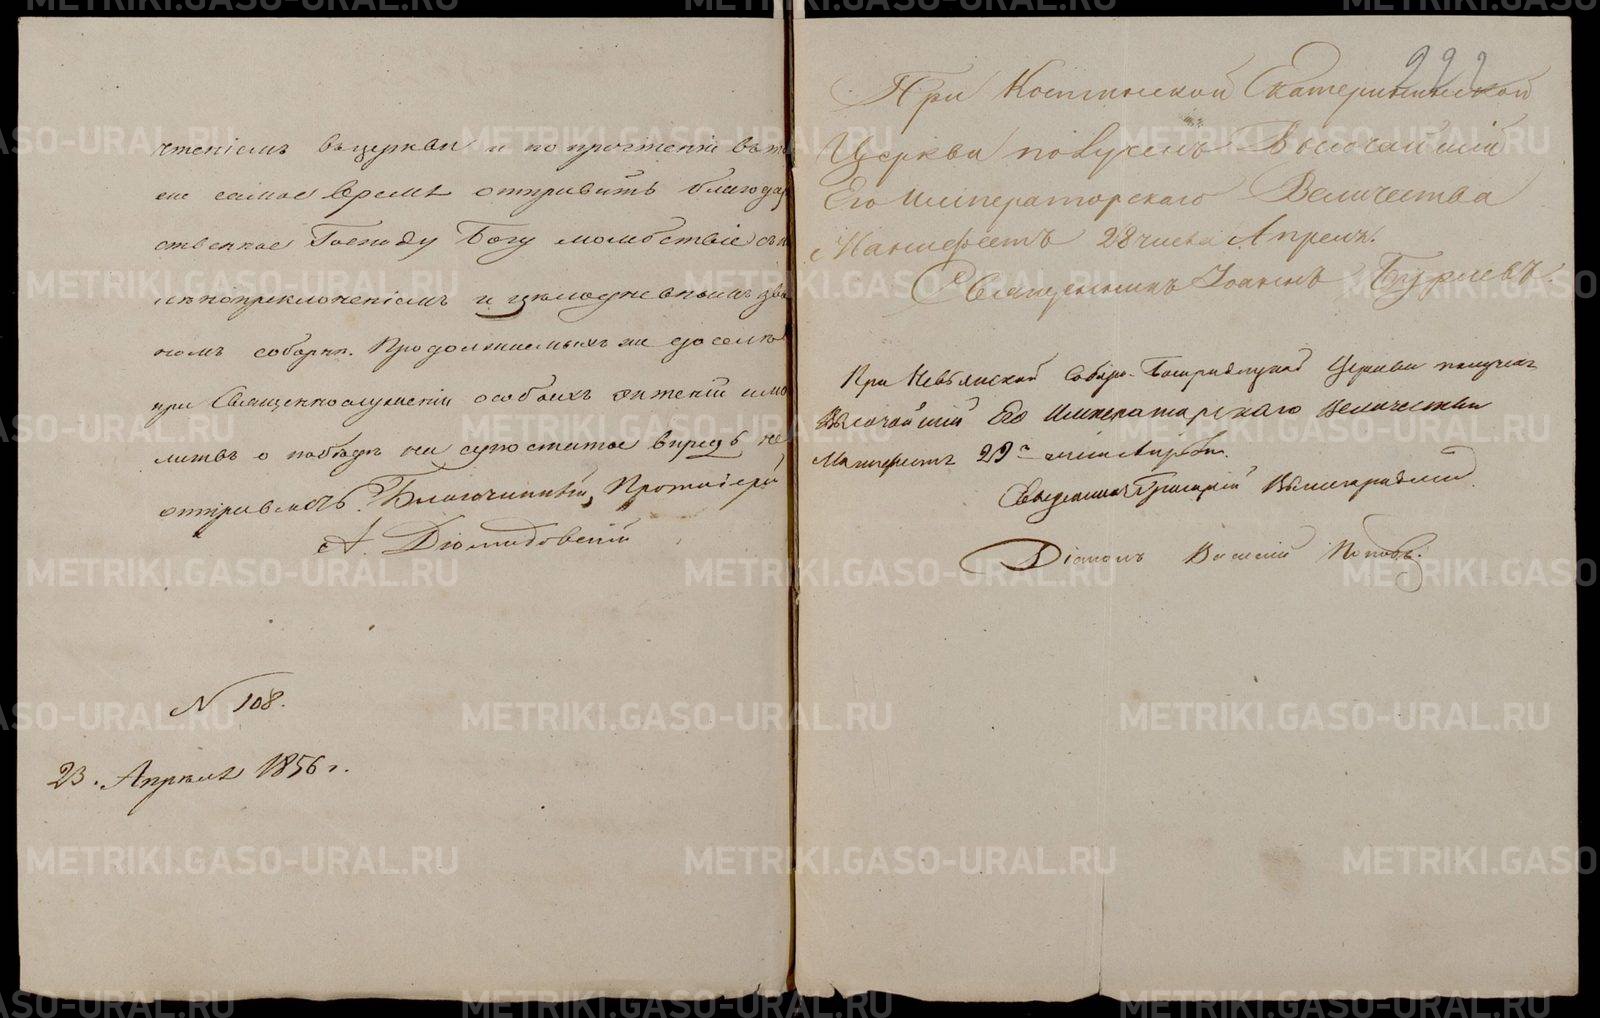 чтеніемъ въ церкви и по прочтеніи въ то
же самое время отправить благодар
ственное Господу Богу молебствіе съ ко
лѣнопреклоненіемъ и цѣлодневнымъ зво
номъ соборнѣ. Продолжаемыхъ же доселѣ
при Священнослуженіи особыхъ ектеній и мо
литвъ о побѣдѣ на супостатовъ впредь не
отправлять. Благочинный, Протоіерей
А. Діомидовскій
N 108.
23. Апрѣля 1856 г.
222
При Костинской Екатерининской
Церкви получен Высочайшій
Его Императорскаго Величества
Манифестъ 28 числа Апреля.
Священникъ Іоаннъ Бурлевъ
При Невьянской Собор. Богородицкой Церкви получен
Высочайшій Его Императорскаго Величества
Манифестъ 29 числа Апреля.
Священник Григорій
Діаконъ Василій Поповъ.
METRIKI.GASO-URAL.RU